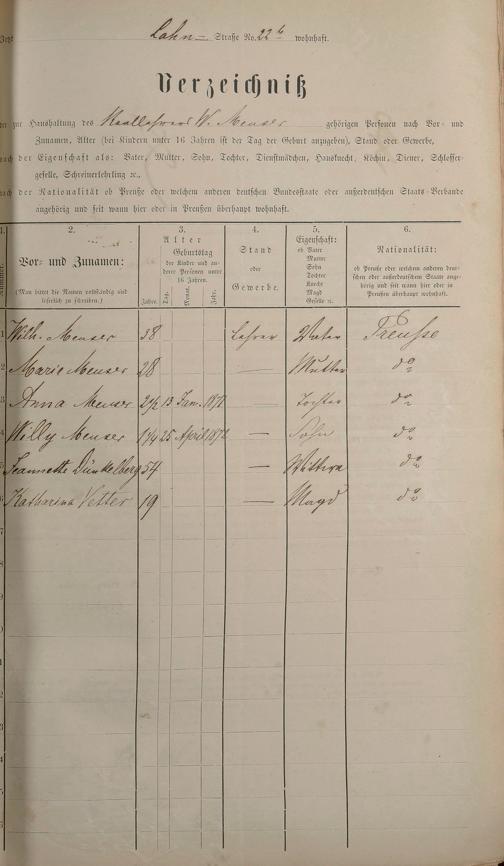 Jetzt Lahn- Straße No. 22 b wohnhaft.
Verzeichniß
der zur Haushaltung des W. Menser gehörigen Personen nach Vor- und
Zunamen, Alter (bei Kindern unter 16 Jahren ist der Tag der Geburt anzugeben), Stand oder Gewerbe,
nach der Eigenschaft als: Vater, Mutter, Sohn, Tochter, Dienstmädchen, Hausknecht, Köchin, Diener, Schlosser-
geselle, Schreinerlehrling ꝛc.,
nach der Nationalität ob Preuße oder welchem anderen deutschen Bundesstaate oder außerdeutschen Staats-Verbande
angehörig und seit wann hier oder in Preußen überhaupt wohnhaft.
1. 2. 3. 4. 5. 6.
Nummer. Vor- und Zunamen: (Man bittet die Namen vollständig und leserlich zu schreiben.)
Alter Geburtstag der Kinder und anderer Personen unter 16 Jahren. Jahre. Tag. Monat. Jahr.
Stand oder Gewerbe.
Eigenschaft: ob Vater Mutter Sohn Tochter Knecht Magd Geselle ꝛc.
Nationalität: ob Preuße oder welchem anderen deutschen oder außerdeutschen Staate angehörig und seit wann hier oder in Preußen überhaupt wohnhaft.
1 Wilh. Menser 38 Lehrer Vater Preuße
2 Marie Menser 28 — Mutter do
3 Anna Menser 2 1/2 13 Jan. 1871 — Tochter do
4 Willy Menser 1 1/4 25 April 1872 — Sohn do
5 Jeannette Dünkelberg 54 — Wittwe do
6 Katharina Vetter 19 — Magd do